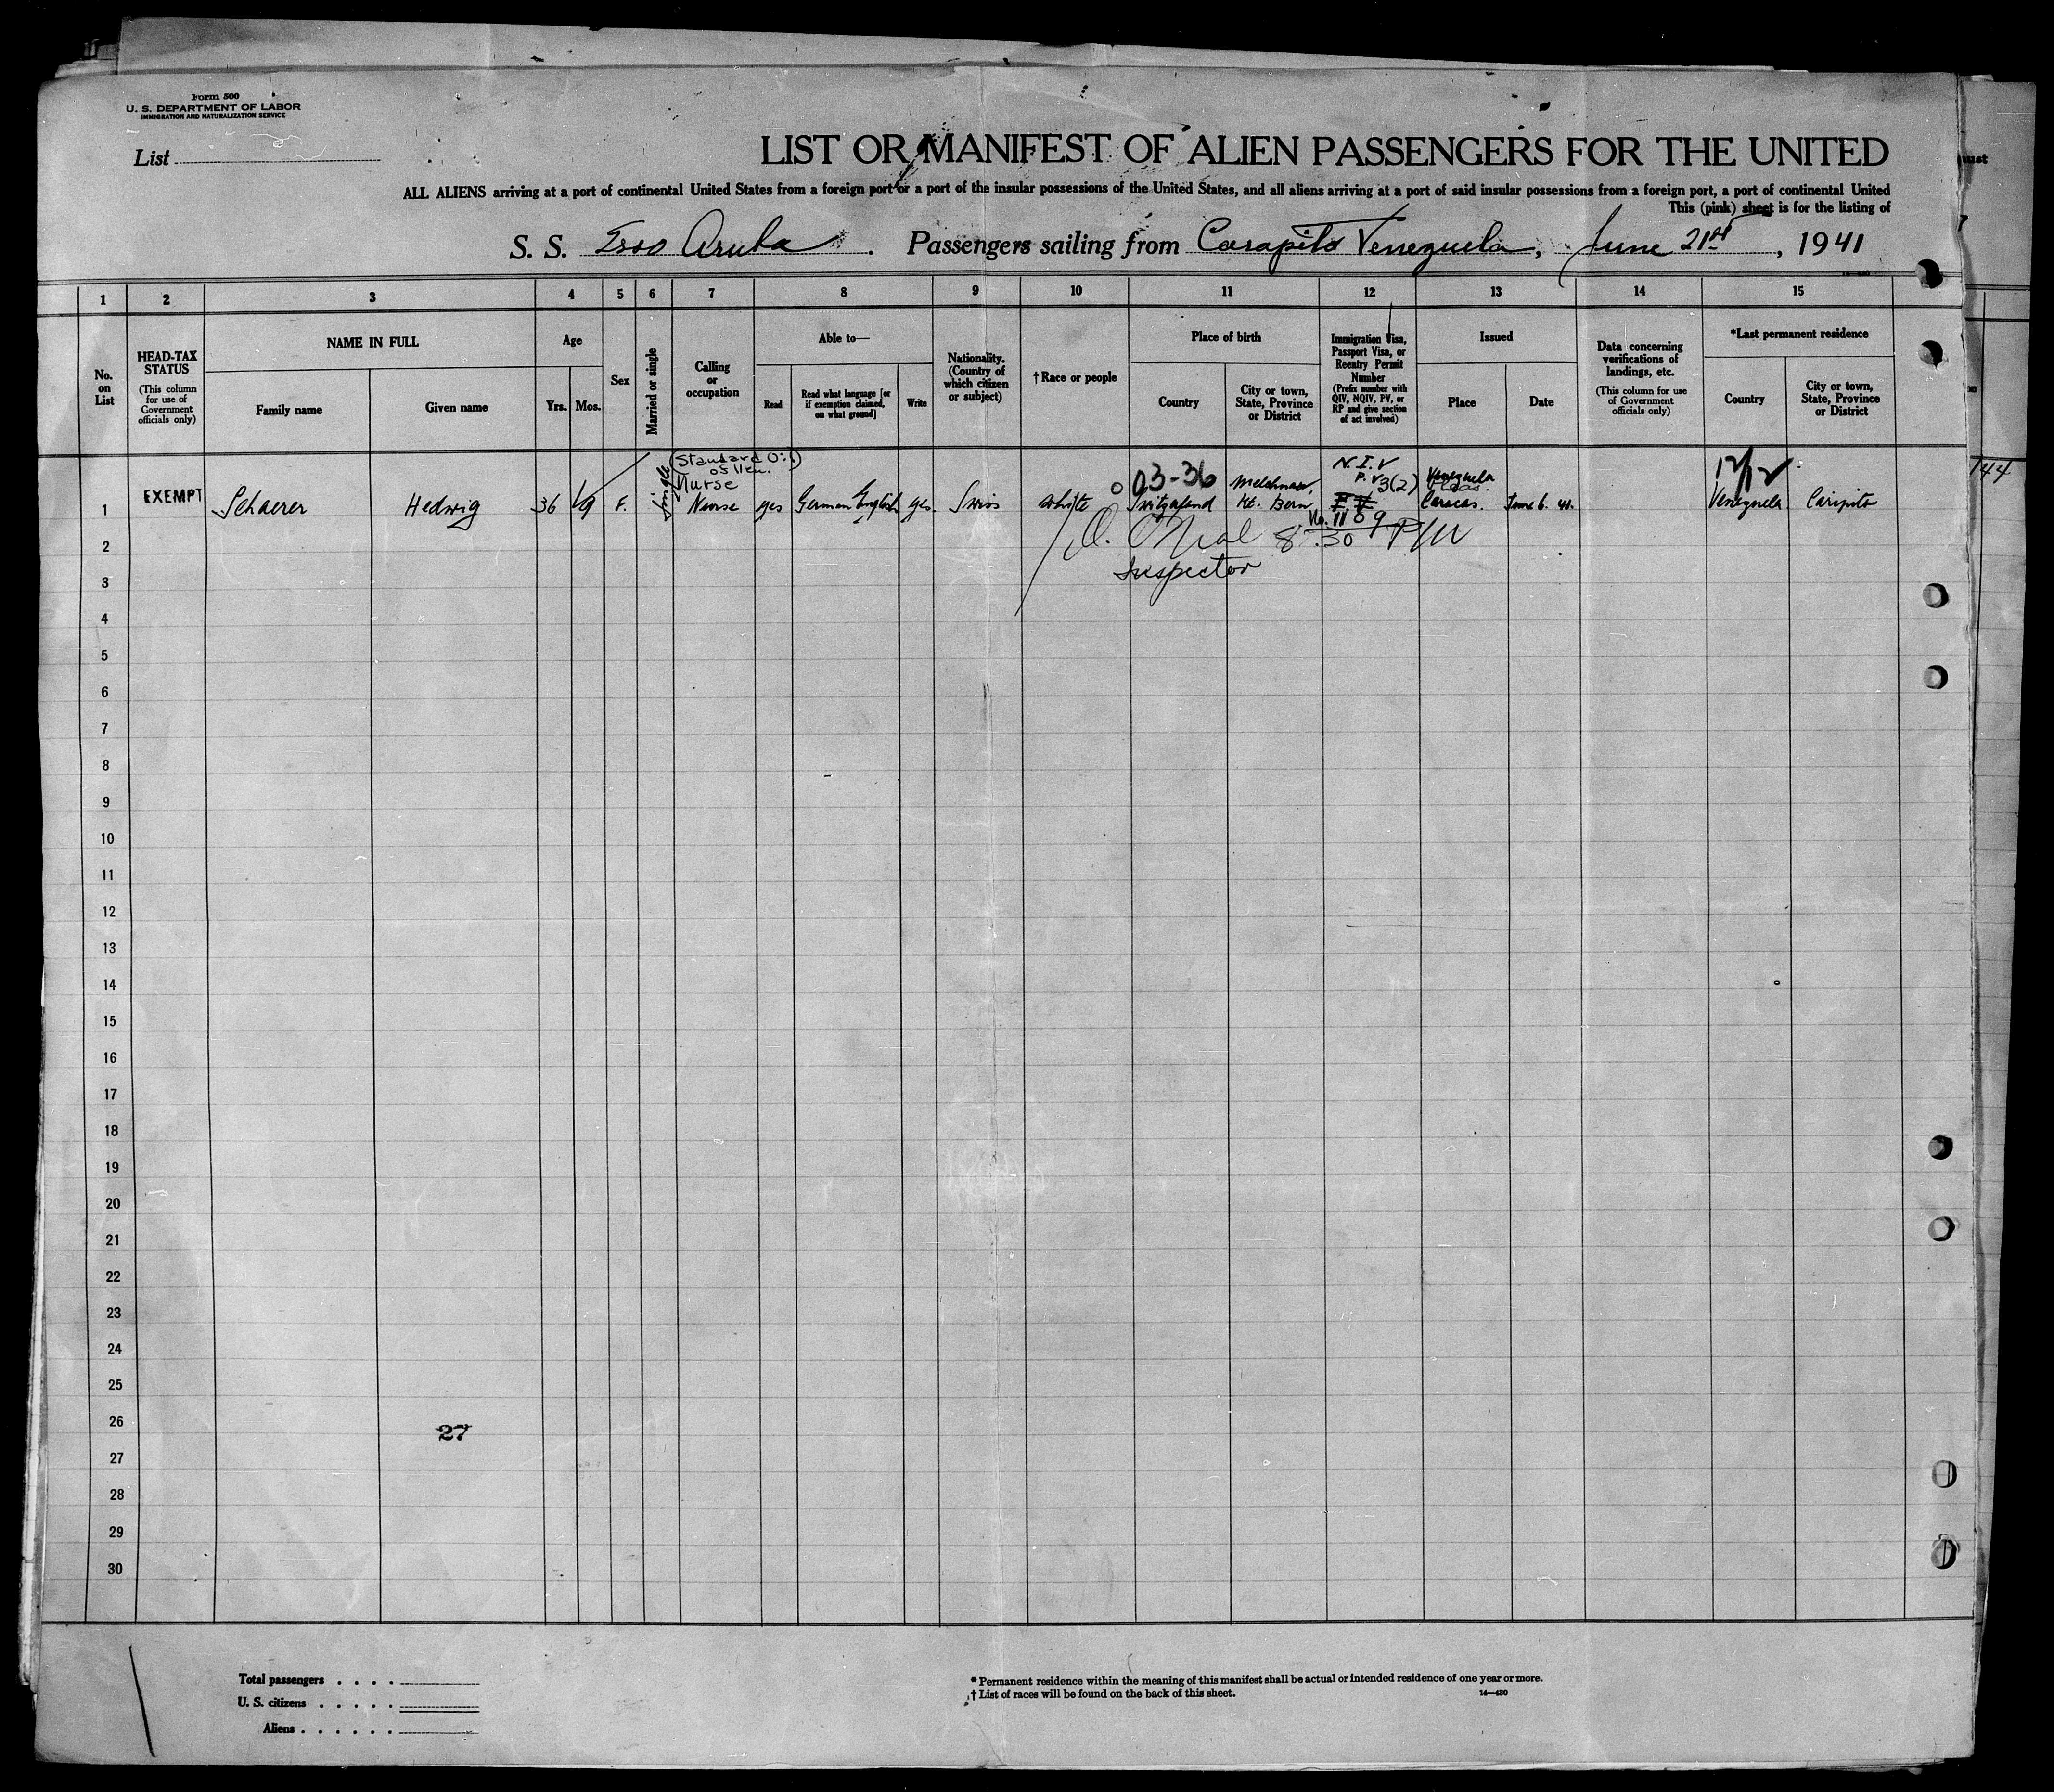 Form 500
U. S. DEPARTMENT OF LABOR
IMMIGRATION AND NATURALIZATION SERVICE
List
LIST OR MANIFEST OF ALIEN PASSENGERS FOR THE UNITED
ALL ALIENS arriving at a port of continental United States from a foreign port or a port of the insular possessions of the United States, and all aliens arriving at a port of said insular possessions from a foreign port, a port of continental United
This (pink) sheet is for the listing of
S. S. Esso Aruba. Passengers sailing from Carapito Venezuela, June 21st, 1941
16—430
1 2 3 4 5 6 7 8 9 10 11 12 13 14 15
No. on List
HEAD-TAX STATUS
(This column for use of Government officials only)
NAME IN FULL
Family name
Given name
Age
Yrs.
Mos.
Sex
Married or single
Calling or occupation
Able to—
Read
Read what language [or if exemption claimed, on what ground]
Write
Nationality. (Country of which citizen or subject)
†Race or people
Place of birth
Country
City or town, State, Province or District
Immigration Visa, Passport Visa, or Reentry Permit Number
(Prefix number with QIV, NQIV, PV, or RP and give section of act involved)
Issued
Place
Date
Data concerning verifications of landings, etc.
(This column for use of Government officials only)
*Last permanent residence
Country
City or town, State, Province or District
(Standard Oil
Nurse
03-36
N.I.V
P.V 3(2)
Venezuela
144
1 EXEMPT Schaerer Hedwig 36 9 F. Single Nurse yes German English yes. Swiss white Switzerland Kt. Bern Caracas. June 6. 41. Venezuela Caripito
No. 1169
2 8:30 PM
3 Inspector
4
5
6
7
8
9
10
11
12
13
14
15
16
17
18
19
20
21
22
23
24
25
26
27
27
28
29
30
Total passengers . . . .
U. S. citizens . . . . .
Aliens . . . . . .
* Permanent residence within the meaning of this manifest shall be actual or intended residence of one year or more.
† List of races will be found on the back of this sheet.
14—430